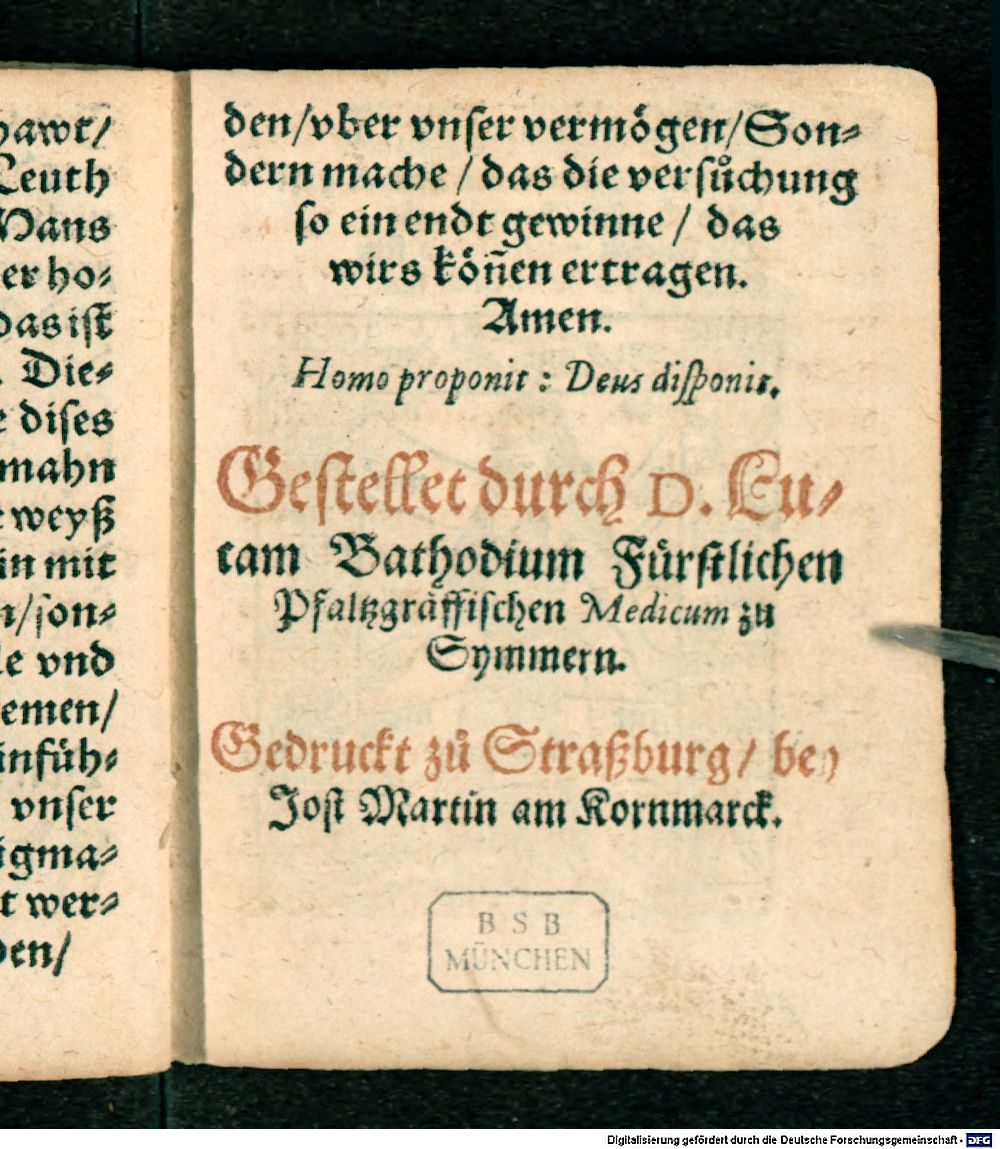 hawt/
Leuth
Mans
er ho⸗
das ist
. Die⸗
e dises
mahn
e weyß
in mit
n/son⸗
le vnd
emen/
infüh⸗
vnser
igma⸗
t wer⸗
den/
den/vber vnser vermögen/Son⸗
dern mache / das die versůchung
so ein endt gewinne / das
wirs köñen ertragen.
Amen.
Homo proponit : Deus disponit.
Gestellet durch D. Lu⸗
cam Bathodium Fürstlichen
Pfaltzgräffischen Medicum zu
Symmern.
Gedruckt zů Straßburg/ bey
Jost Martin am Kornmarck.
B S B
MÜNCHEN
Digitalisierung gefördert durch die Deutsche Forschungsgemeinschaft - DFG